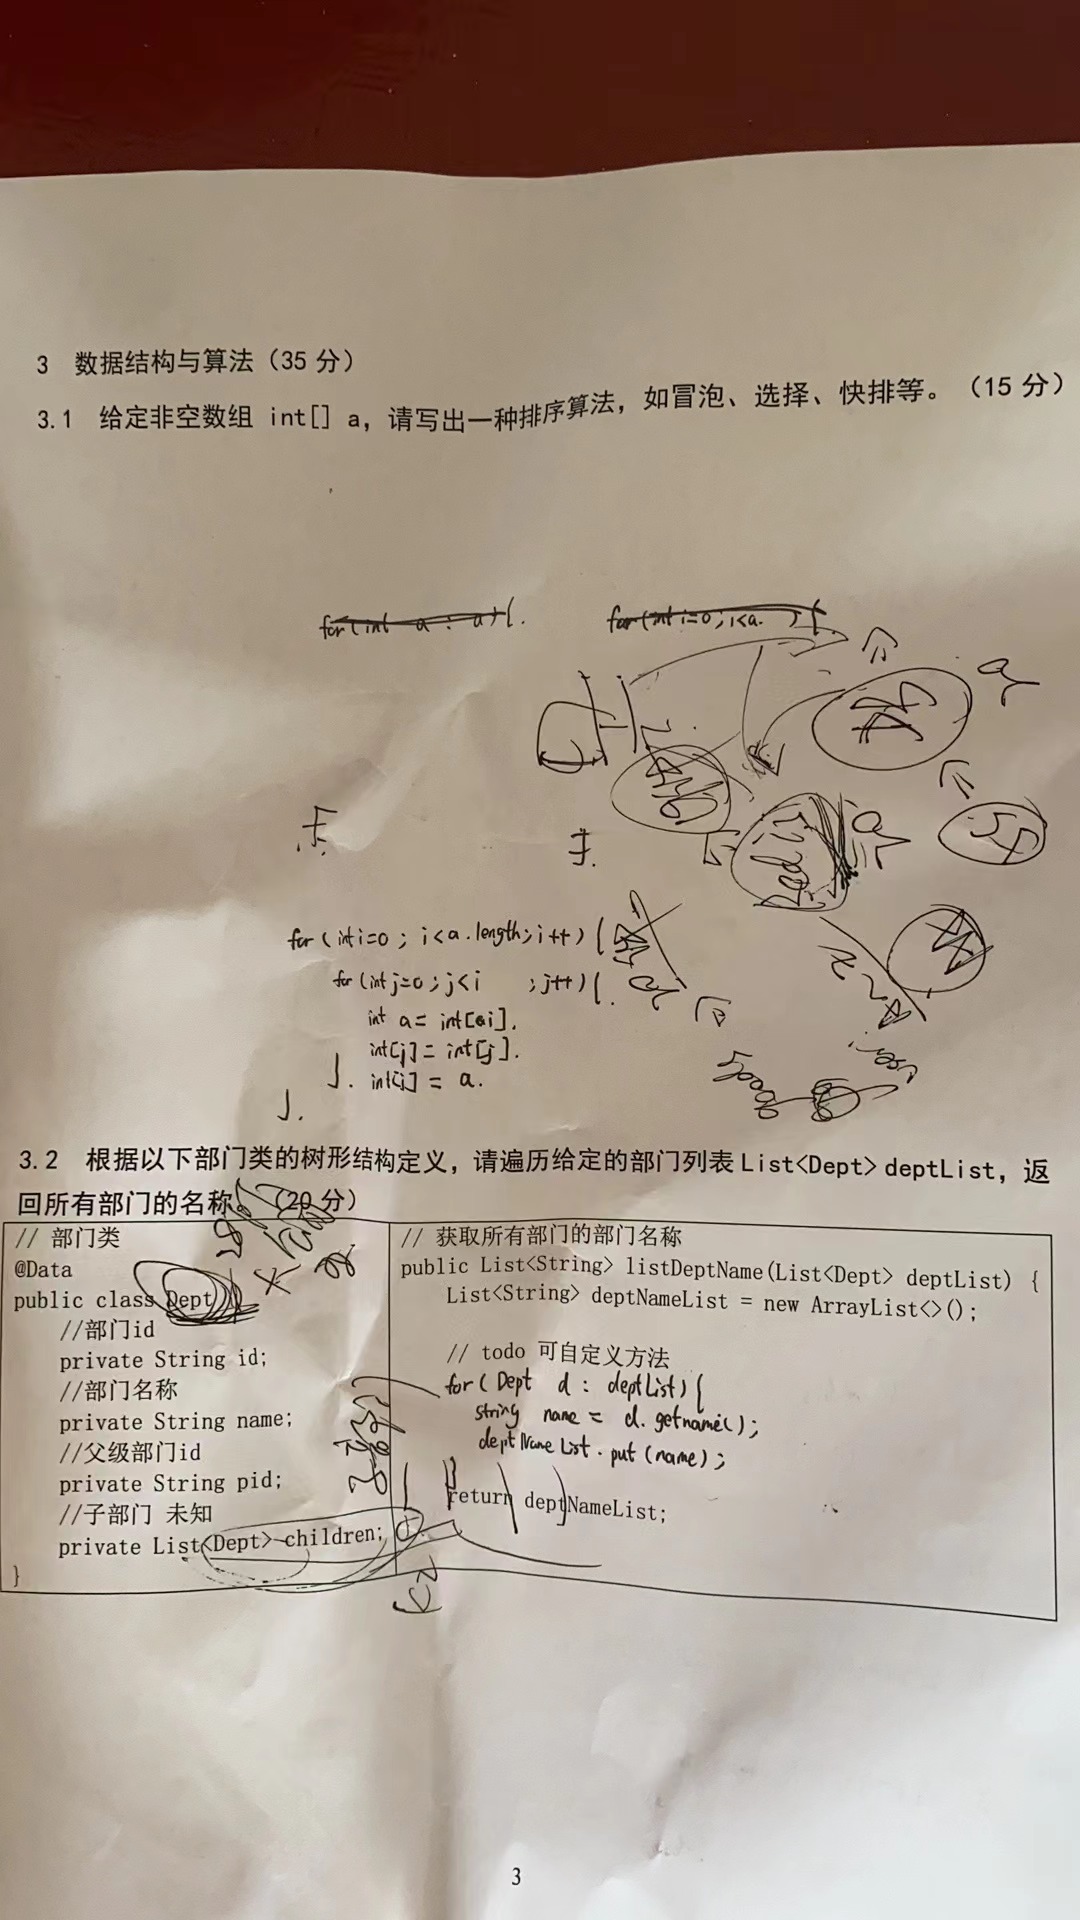 3 数据结构与算法（35 分）
3.1 给定非空数组 int[] a，请写出一种排序算法，如冒泡、选择、快排等。（15 分）
for(int a : a){.
for(int i=0;i<a. ){
for(int i=0; i<a.length;i++){
for(int j=0;j<i ;j++){.
int a= int[ai].
int[j]= int[j].
}. int[i] = a.
}.
3.2 根据以下部门类的树形结构定义，请遍历给定的部门列表 List<Dept> deptList，返
回所有部门的名称。（20 分）
// 部门类
@Data
public class Dept {
//部门id
private String id;
//部门名称
private String name;
//父级部门id
private String pid;
//子部门 未知
private List<Dept> children;
}
// 获取所有部门的部门名称
public List<String> listDeptName(List<Dept> deptList) {
List<String> deptNameList = new ArrayList<>();
// todo 可自定义方法
for(Dept d : deptList){
string name = d.getname();
deptNameList.put(name);
}
return deptNameList;
3